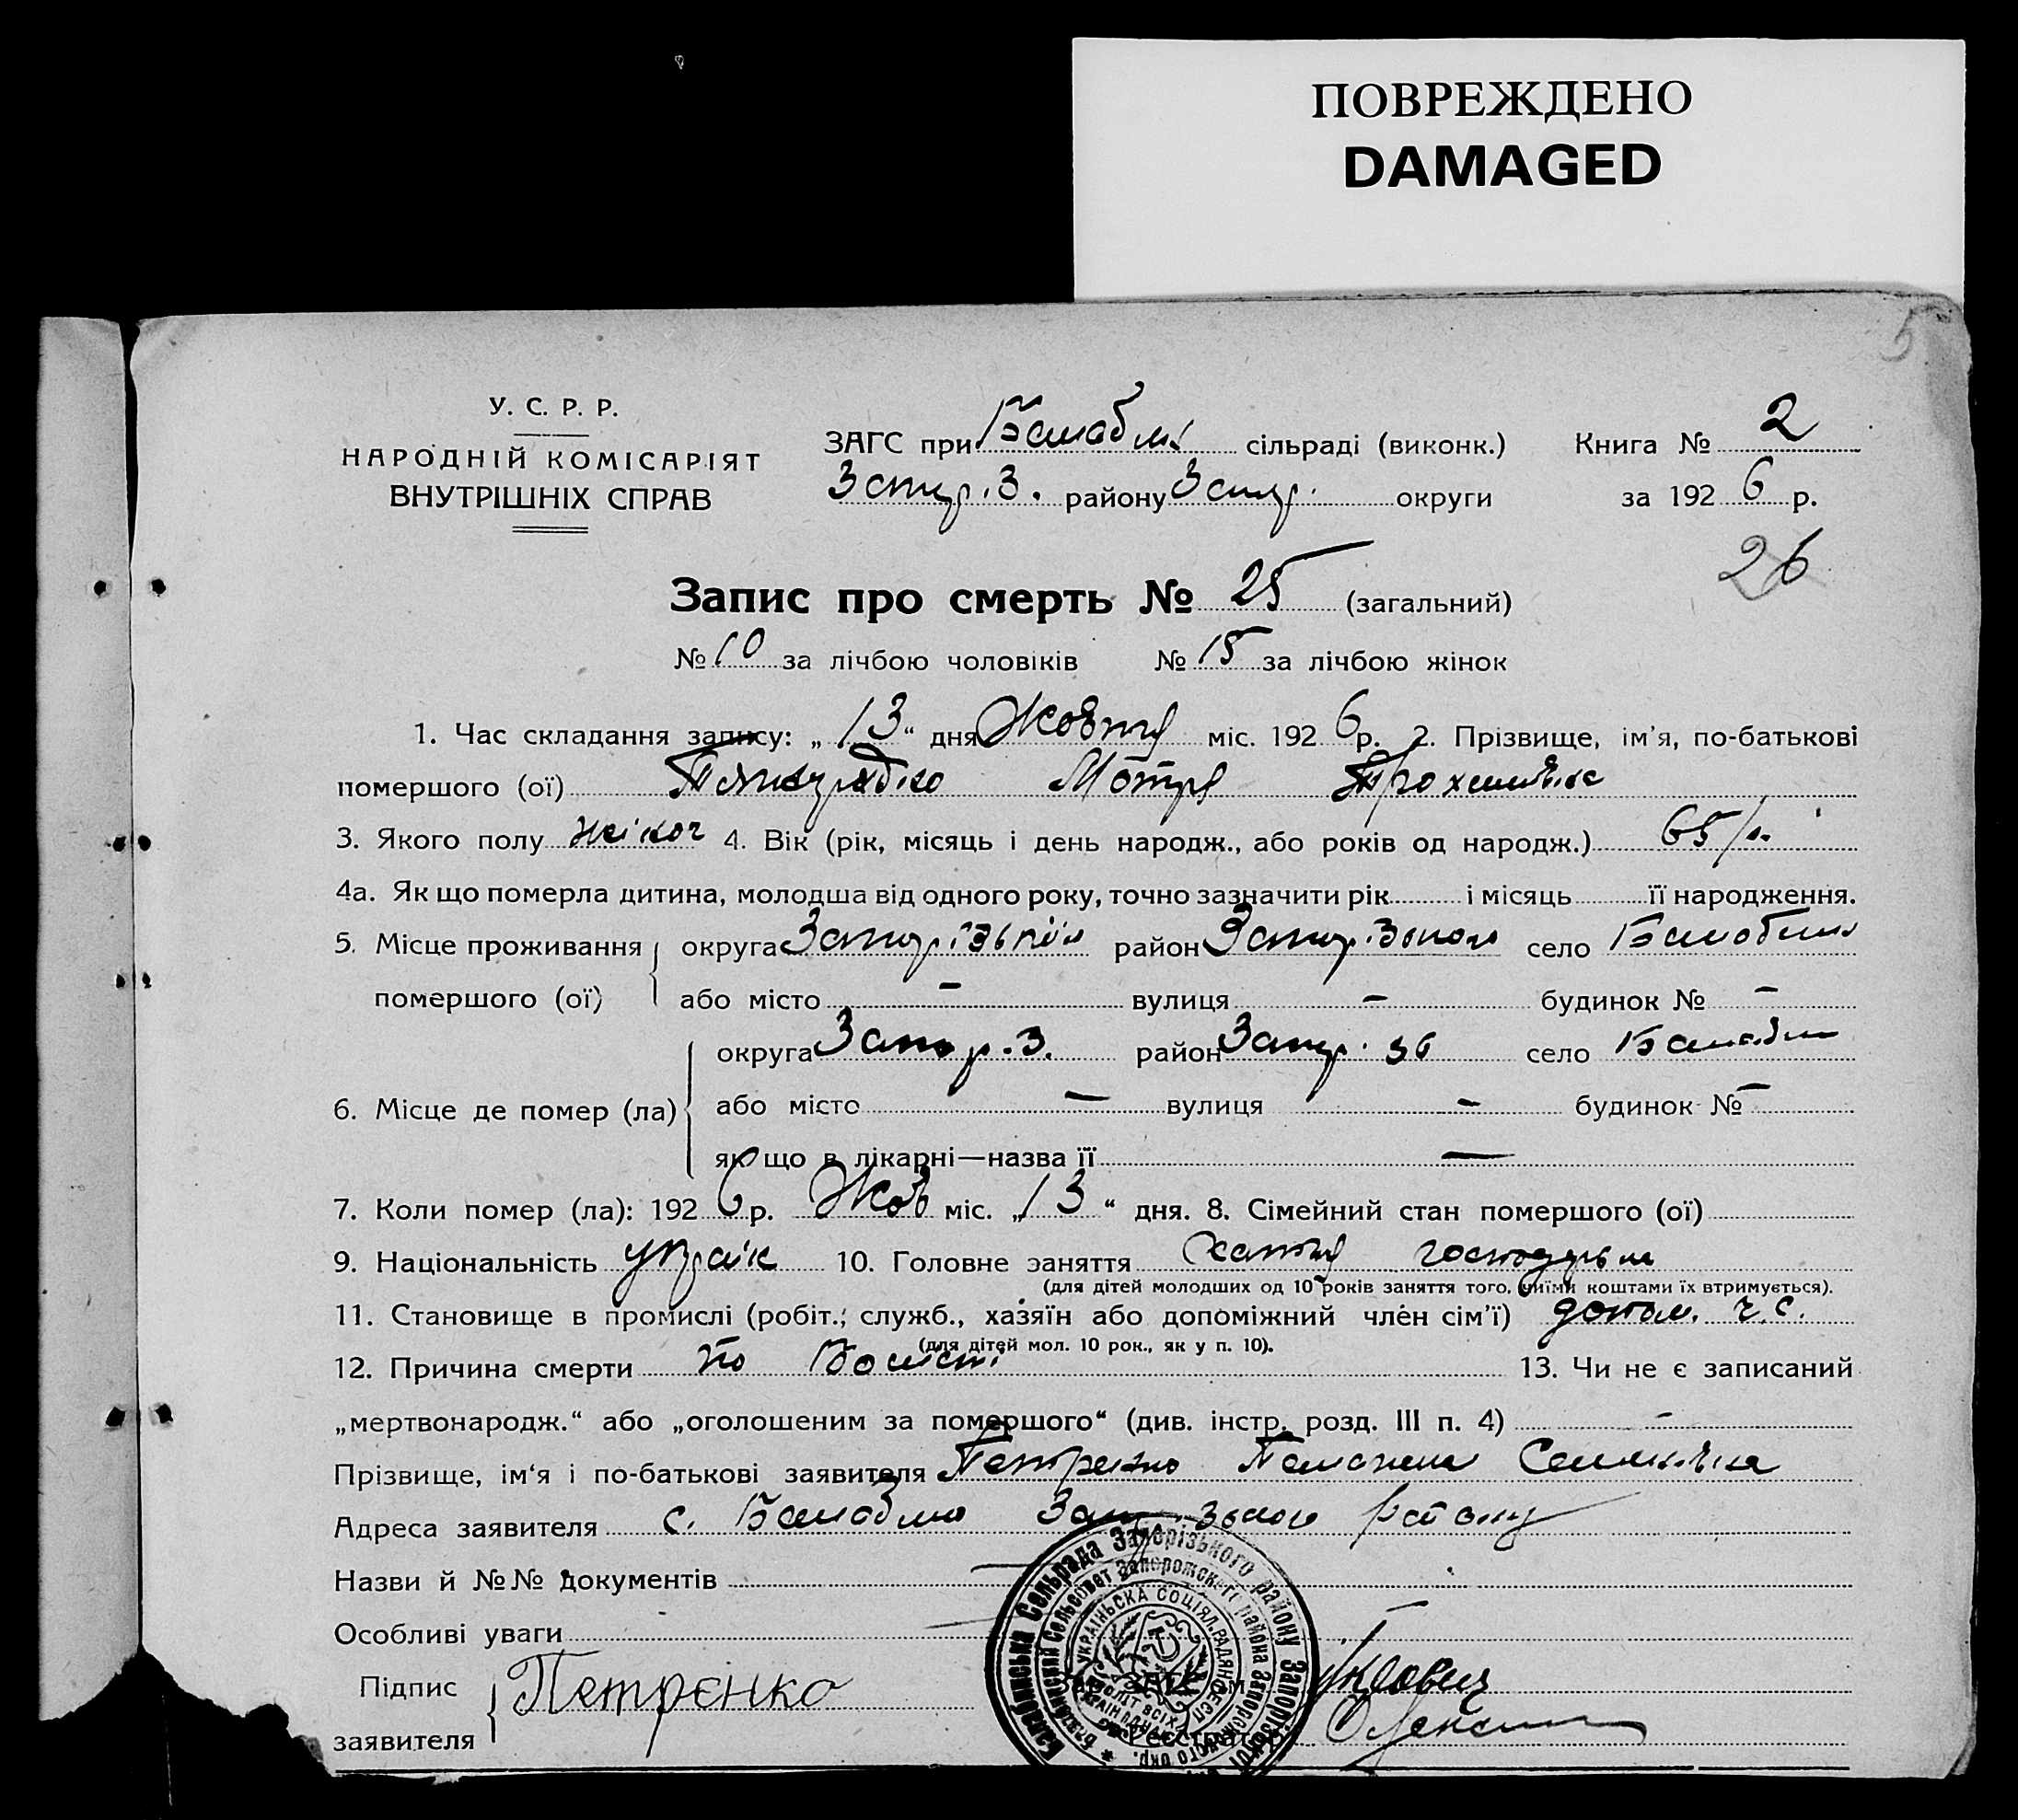 ПОВРЕЖДЕНО
DAMAGED
5
У. С. Р. Р.
НАРОДНІЙ КОМІСАРІЯТ
ВНУТРІШНІХ СПРАВ
ЗАГС при Балабин сільраді (виконк.) Книга № 2
Запор.З. району Запор. округи за 192 6 р.
26
Запис про смерть № 25 (загальний)
№ 10 за лічбою чоловіків № 15 за лічбою жінок
1. Час складання запису: „ 13 “ дня Жовтня міс. 192 6 р. 2. Прізвище, ім’я, по-батькові
помершого (ої) Мотря
3. Якого полу жіноч 4. Вік (рік, місяць і день народж., або років од народж.) 65 р.
4а. Як що померла дитина, молодша від одного року, точно зазначити рік і місяць її народження.
5. Місце проживання округа район село Балабин
помершого (ої) або місто – вулиця – будинок № –
округа Запор.З. район Запор. зб село Балабин
6. Місце де помер (ла) або місто — вулиця – будинок № –
як що в лікарні—назва її —
7. Коли помер (ла): 192 6 р. Жов міс. „ 13 “ дня. 8. Сімейний стан помершого (ої)
9. Національність україн 10. Головне заняття хатня господарьм
(для дітей молодших од 10 років заняття того, чиїми коштами їх втримується).
11. Становище в промислі (робіт., служб., хазяїн або допоміжний член сім’ї) допом. ч.с.
(для дітей мол. 10 рок., як у п. 10).
12. Причина смерти 13. Чи не є записаний
„мертвонародж.“ або „оголошеним за помершого“ (див. інстр. розд. III п. 4) –
Прізвище, ім‘я і по-батькові заявителя Петренко
Адреса заявителя с. Балабино Зап зького району
Назви й №№ документів —
Особливі уваги
Підпис
заявителя Петрєнко
Балабинська Сельрада Запорізького району
Балабинский Сельсовет Запорожского района Запорожского окр.
УКРАЇНЬСКА СОЦІЯЛ.РАДЯН.